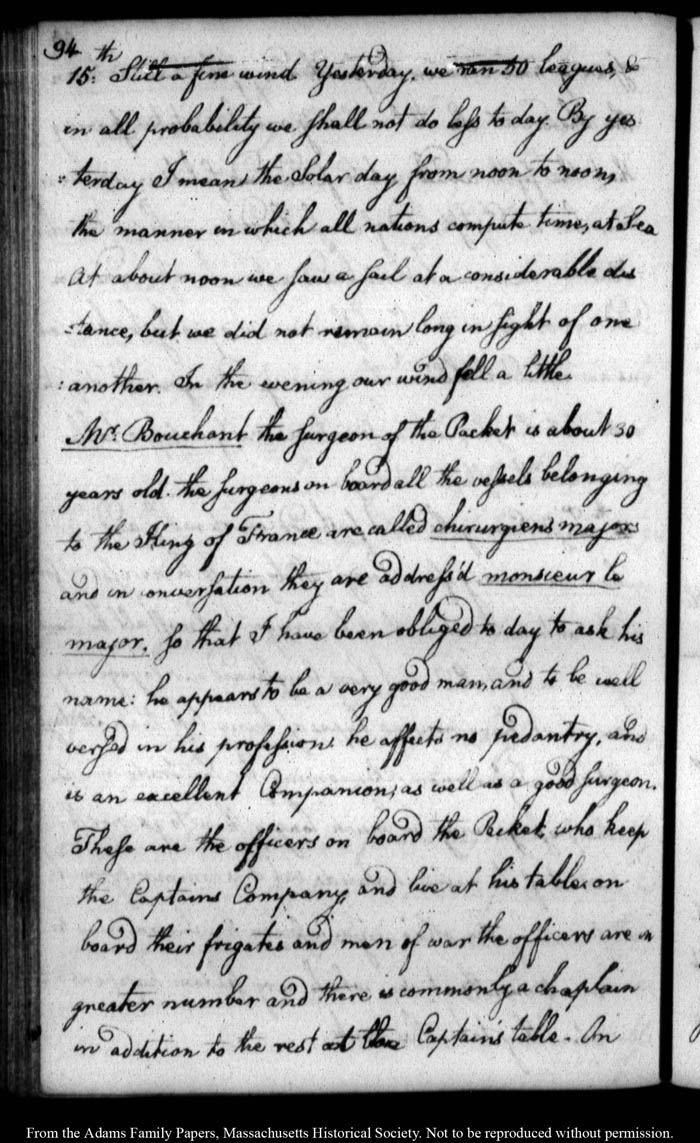 94
15.th Still a fine wind. Yesterday, we ran 50 leagues, &
in all probability we shall not do less to day. By yes
:terday I mean the Solar day from noon to noon,
the manner in which all nations compute time, at Sea
At about noon we saw a sail at a considerable dis
:tance, but we did not remain long in sight of one
:another. In the evening our wind fell a little.
Mr. Bouchant the surgeon of the Packet is about 30
years old. the surgeons on board all the vessels belonging
to the King of France are called chirurgiens majors
and in conversation they are address'd monsieur le
major. so that I have been obliged to day to ask his
name: he appears to be a very good man, and to be well
versed in his profession. he affects no pedantry, and
is an excellent Companion, as well as a good surgeon.
These are the officers on board the Packet, who keep
the Captains Company, and live at his table. on
board their frigates and men of war the officers are in
greater number and there is commonly a chaplain
in addition to the rest at the Captain's table. An
From the Adams Family Papers, Massachusetts Historical Society. Not to be reproduced without permission.